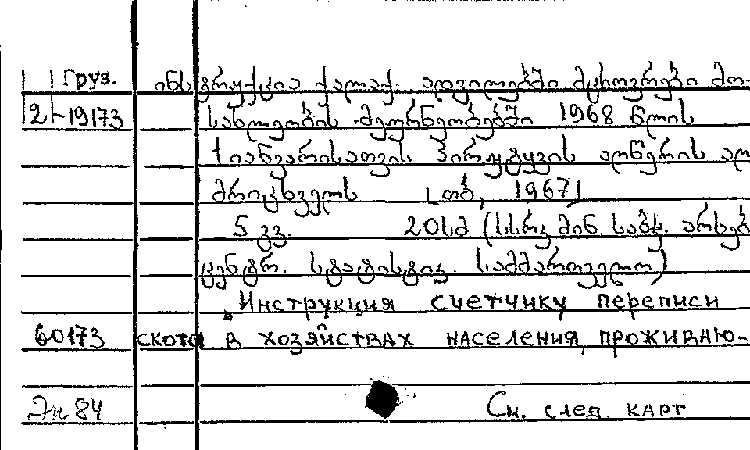 Груз. ინსტრუქცია ქალაქ. ადგილებში მცხოვრები მო-
2-19173 სახლეობის მეურნეობებში 1968 წლის
1 იანვარისათვის პირუტყვის აღწერის აღ
მრიცხველს თბ, 1967]
5 გვ. 20სმ (სსრკ მინ. საბჭ. არსებ
ცენტრ. სტატისტიკ. სამმართველო)
Инструкция счетчику переписи
60173 скота в хозяйствах населения, проживаю-
Эк 84 См. след. карт